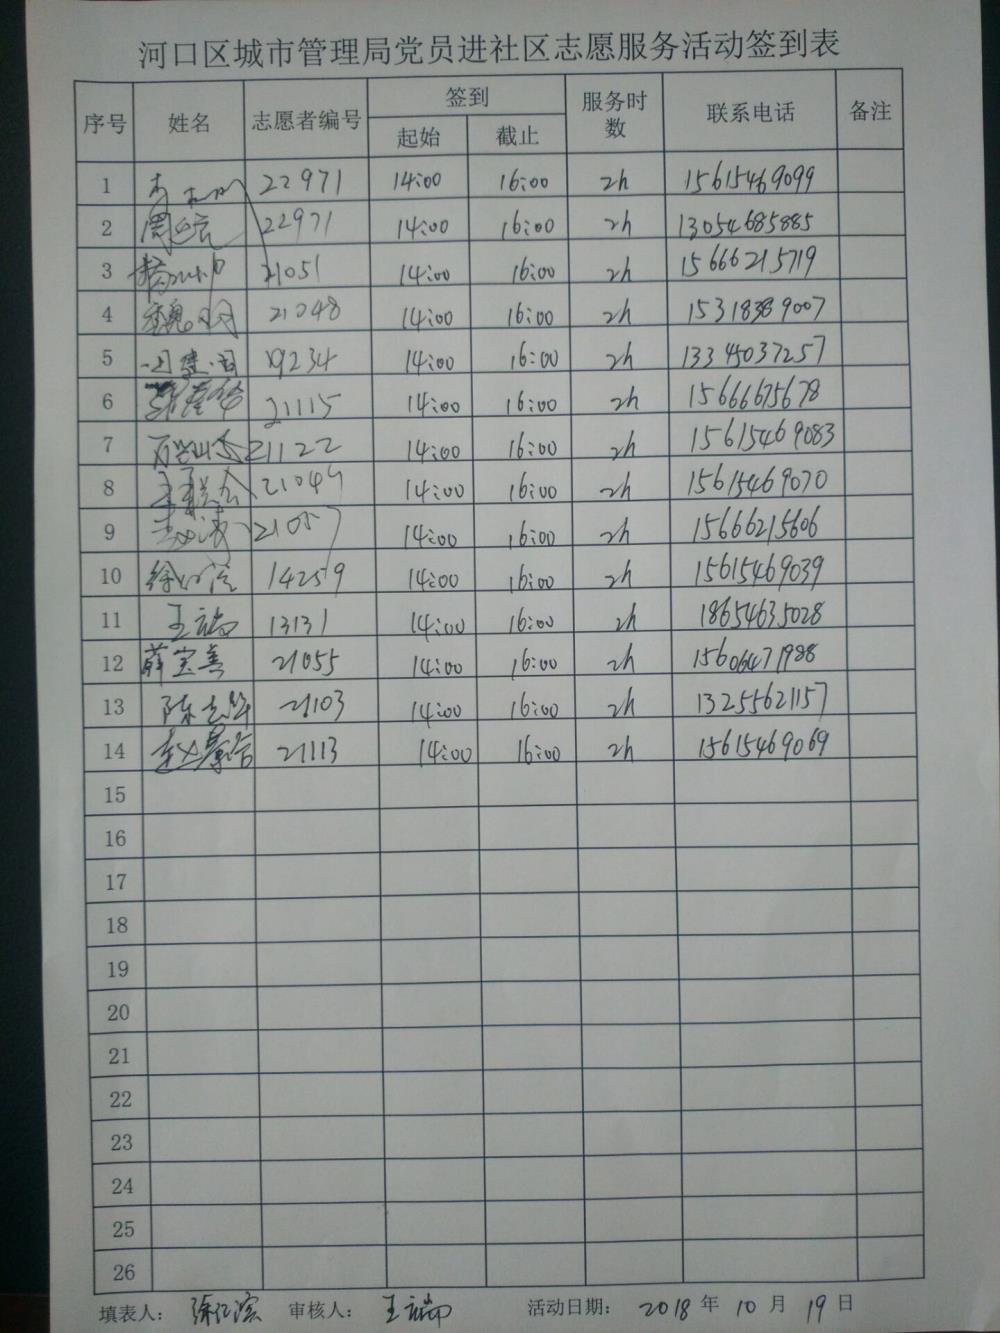 河口区城市管理局党员进社区志愿服务活动签到表
序号 姓名 志愿者编号 签到 服务时数 联系电话 备注
起始 截止
1 22971 14:00 16:00 2h 15615469099
2 22971 14:00 16:00 2h 13054685885
3 21051 14:00 16:00 2h 15666215719
4 21048 14:00 16:00 2h 15318389007
5 19234 14:00 16:00 2h 13345037257
6 21115 14:00 16:00 2h 15666675678
7 21122 14:00 16:00 2h 15615469083
8 21049 14:00 16:00 2h 15615469070
9 21057 14:00 16:00 2h 15666215606
10 14259 14:00 16:00 2h 15615469039
11 王瑞 13131 14:00 16:00 2h 18654635028
12 薛宝善 21055 14:00 16:00 2h 15606471988
13 21103 14:00 16:00 2h 13255621157
14 21113 14:00 16:00 2h 15615469069
15
16
17
18
19
20
21
22
23
24
25
26
填表人： 审核人： 王瑞 活动日期： 2018 年 10 月 19 日